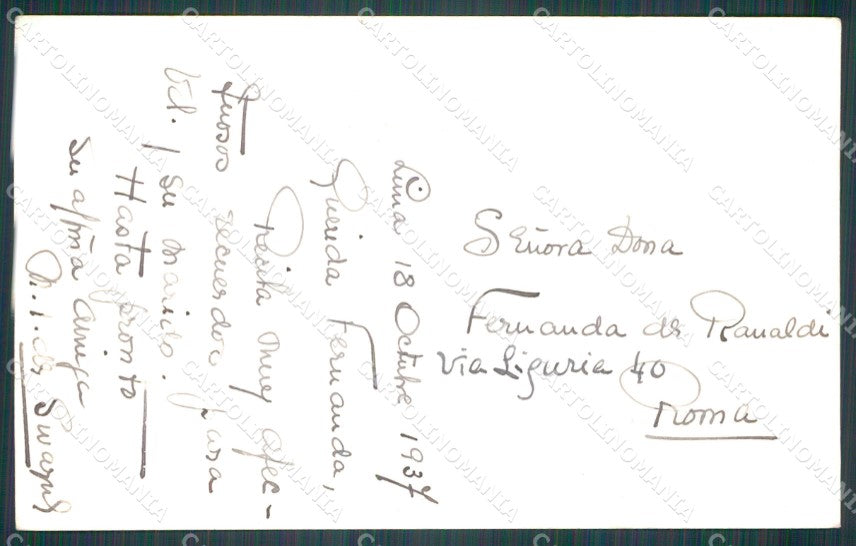 Lima 18 Octubre 1937
Querida Fernanda,
Recita muy afec-
tuosos recuerdos para
Vd. y su marido.
Hasta pronto
Su afma amiga
M. I. de
Señora Dona
Fernanda de Ranaldi
Via Liguria 40
Roma
CARTOLINOMANIA